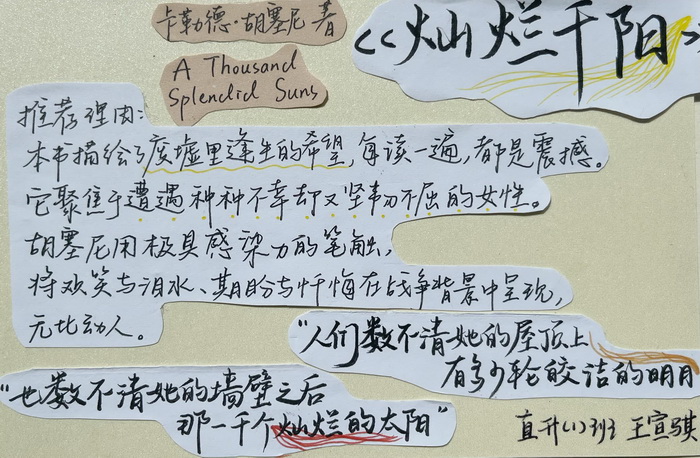 卡勒德·胡塞尼 著
《灿烂千阳》
A Thousand
Splendid Suns
推荐理由:
本书描绘了废墟里逢生的希望,每读一遍,都是震撼。
它聚焦于遭遇种种不幸却又坚韧不屈的女性。
胡塞尼用极具感染力的笔触,
将欢笑与泪水、期盼与忏悔在战争背景中呈现,
无比动人。
“人们数不清她的屋顶上
有多少轮皎洁的明月
“也数不清她的墙壁之后
那一千个灿烂的太阳”
直升(1)班 王宣骐